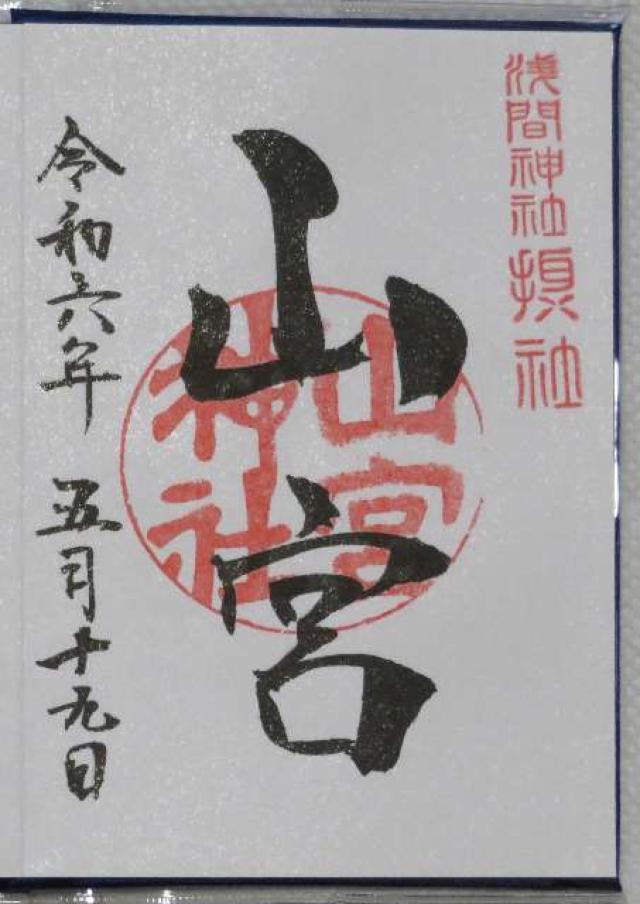 浅間神社摂社
山宮
山宮
神社
令和六年 五月十九日